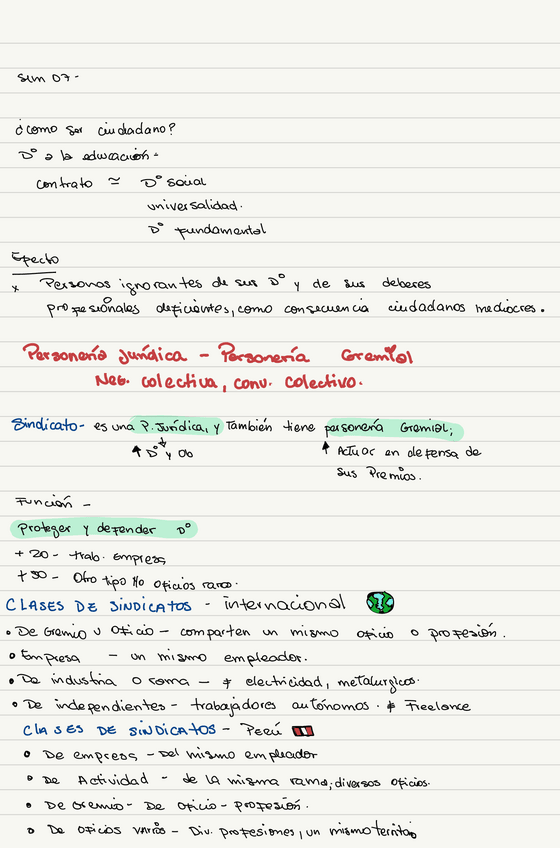 Sem 07-
¿como ser ciudadano?
D° a la educación-
contrato ≃ D° social
universalidad.
D° fundamental
Efecto
x Personas ignorantes de sus D° y de sus deberes
profesionales deficientes, como consecuencia ciudadanos mediocres.
Personería Jurídica - Personería Gremial
Neg. colectiva, conv. colectivo.
Sindicato- es una P. Jurídica, y también tiene personería Gremial;
↑ D° y Ob ↑ Actuar en defensa de
sus Premios.
Función -
Proteger y defender D°
+ 20- trab. empresa
+ 50- Otro tipo Ho oficios raros.
CLASES DE SINDICATOS - internacional
• De Gremio u oficio - comparten un mismo oficio o profesión.
• Empresa - un mismo empleador.
• De industria o rama - # electricidad, metalurgicos.
• De independientes - trabajadores autónomos. # Freelance
CLASES DE SINDICATOS - Perú
• De empresa - Del mismo empleador
• De Actividad - de la misma rama, diversos oficios.
• De Gremio - De oficio - profesión.
• De oficios varios - Div. profesiones, un mismo territo